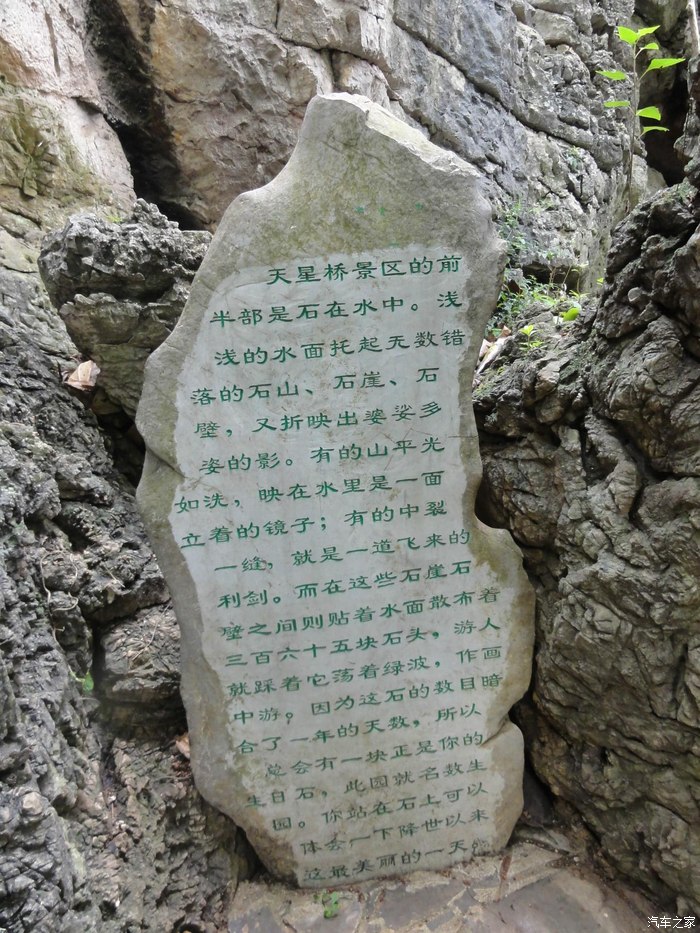 天星桥景区的前
半部是石在水中。浅
浅的水面托起无数错
落的石山、石崖、石
壁，又折映出婆娑多
姿的影。有的山平光
如洗，映在水里是一面
立着的镜子；有的中裂
一缝，就是一道飞来的
利剑。而在这些石崖石
壁之间则贴着水面散布着
三百六十五块石头，游人
就踩着它荡着绿波，作画
中游。因为这石的数目暗
合了一年的天数，所以
总会有一块正是你的
生日石，此园就名数生
园。你站在石上可以
体会一下降世以来
这最美丽的一天。
汽车之家